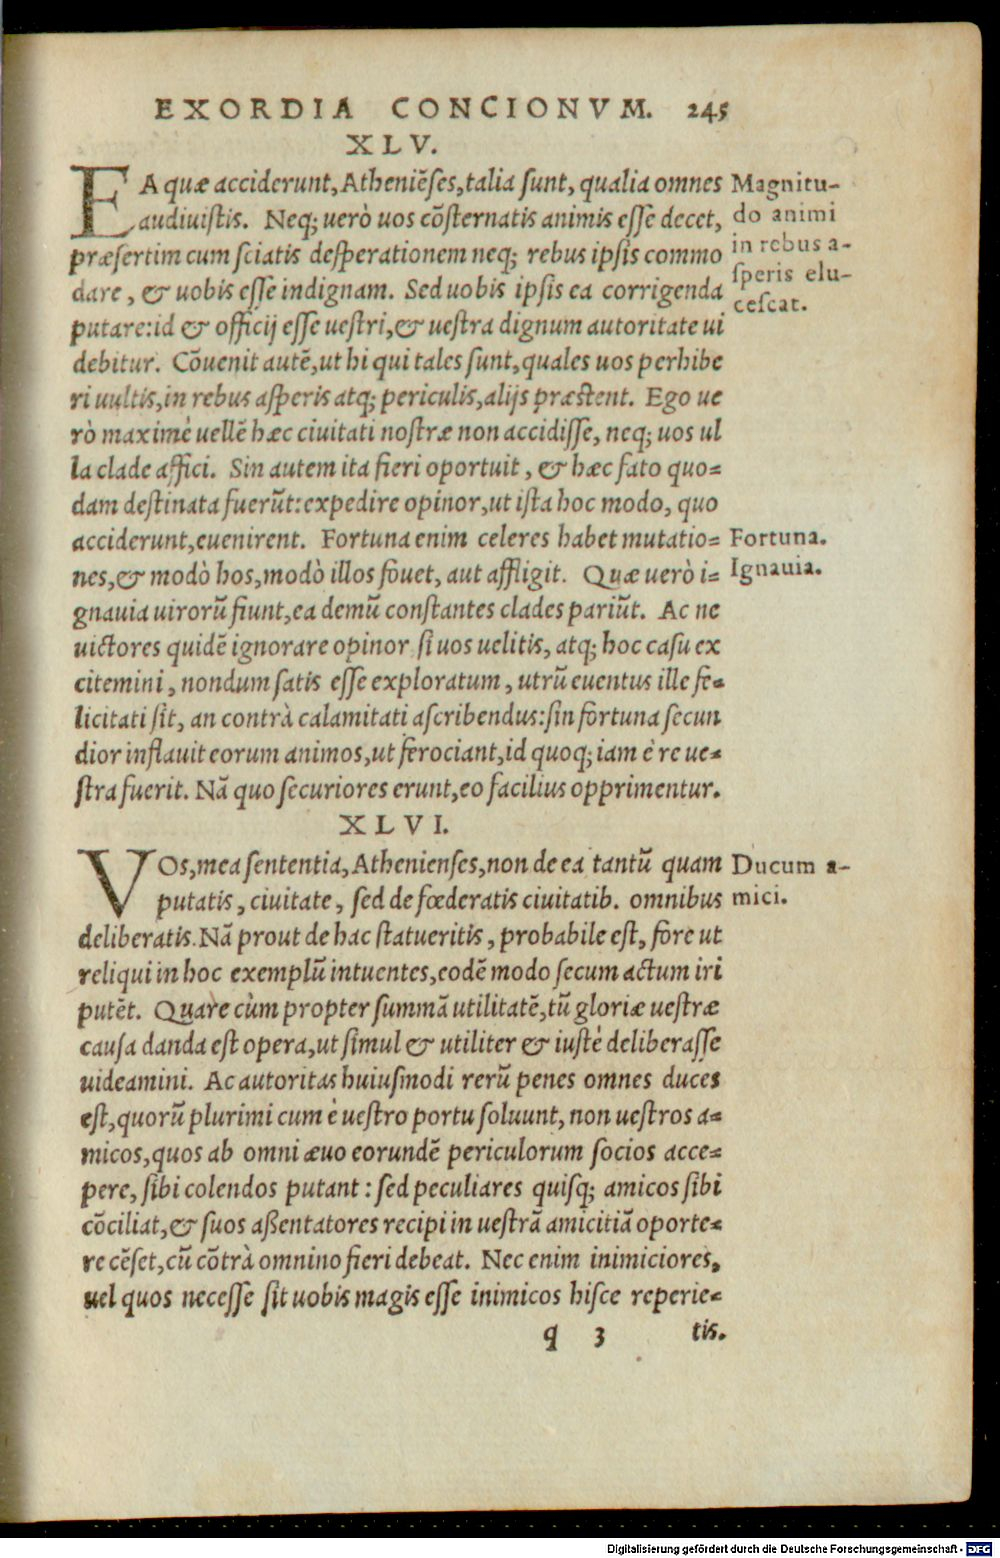 EXORDIA CONCIONVM. 245
XLV.
EA quæ acciderunt, Atheniēses, talia sunt, qualia omnes
audiuistis. Neq; uerò uos cōsternatis animis esse decet,
præsertim cum sciatis desperationem neq; rebus ipsis commo
dare, & uobis esse indignam. Sed uobis ipsis ea corrigenda
putare: id & officij esse uestri, & uestra dignum autoritate ui
debitur. Cōuenit autē, ut hi qui tales sunt, quales uos perhibe
ri uultis, in rebus asperis atq; periculis, alijs præstent. Ego ue
rò maximè uellē hæc ciuitati nostræ non accidisse, neq; uos ul
la clade affici. Sin autem ita fieri oportuit, & hæc fato quo=
dam destinata fuerūt: expedire opinor, ut ista hoc modo, quo
acciderunt, euenirent. Fortuna enim celeres habet mutatio=
nes, & modò hos, modò illos fouet, aut affligit. Quæ uerò i=
gnauia uirorū fiunt, ea demū constantes clades pariūt. Ac ne
uictores quidē ignorare opinor si uos uelitis, atq; hoc casu ex
citemini, nondum satis esse exploratum, utrū euentus ille fe=
licitati sit, an contrà calamitati ascribendus: sin fortuna secun
dior inflauit eorum animos, ut ferociant, id quoq; iam è re ue=
stra fuerit. Nā quo securiores erunt, eo facilius opprimentur.
Magnitu-
do animi
in rebus a-
speris elu-
cescat.
Fortuna.
Ignauia.
XLVI.
VOs, mea sententia, Athenienses, non de ea tantū quam
putatis, ciuitate, sed de fœderatis ciuitatib. omnibus
deliberatis. Nā prout de hac statueritis, probabile est, fore ut
reliqui in hoc exemplū intuentes, eodē modo secum actum iri
putēt. Quare cùm propter summā utilitatē, tū gloriæ uestræ
causa danda est opera, ut simul & utiliter & iustè deliberasse
uideamini. Ac autoritas huiusmodi rerū penes omnes duces
est, quorū plurimi cum è uestro portu soluunt, non uestros a=
micos, quos ab omni æuo eorundē periculorum socios acce=
pere, sibi colendos putant: sed peculiares quisq; amicos sibi
cōciliat, & suos aßentatores recipi in uestrā amicitiā oporte=
re cēset, cū cōtrà omnino fieri debeat. Nec enim inimiciores,
uel quos necesse sit uobis magis esse inimicos hisce reperie=
Ducum a-
mici.
q 3 tis.
Digitalisierung gefördert durch die Deutsche Forschungsgemeinschaft - DFG